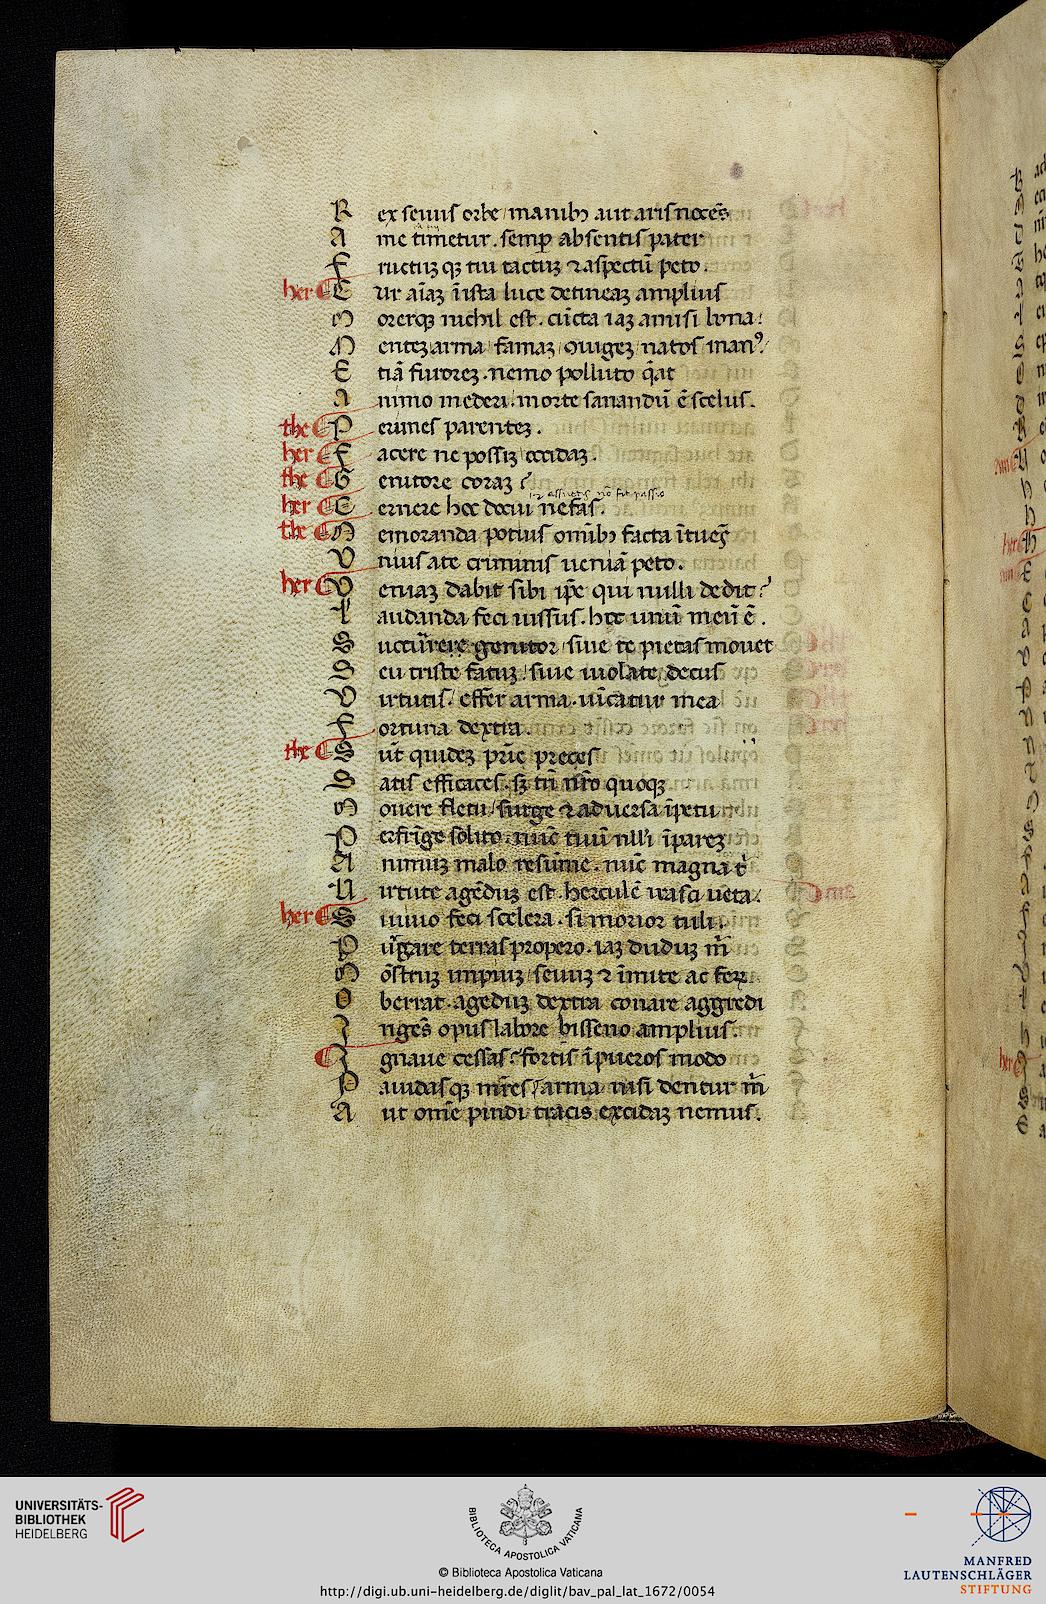 R ex seuus orbe manibꝫ aut aris nocēs
A me timetur. semꝑ absentis pater
F ructuꝫ qꝫ tui tactuꝫ ⁊ aspectū peto.
her C ur aīaꝫ ī ista luce detineaꝫ amplius
M orerqꝫ nichil est. cūcta iaꝫ amisi bona:
M enteꝫ arma famaꝫ 9iugeꝫ natos man9.
E tiā furoreꝫ. nemo polluto q̄at
A nimo mederi. morte sanandū ē scelus.
the P erimes parenteꝫ.
her F acere ne possiꝫ occidaꝫ.
the G enitore coraꝫ?
her C ernere hoc docui nefas.
the M emoranda potius omībꝫ facta ītuēs
V nius a te criminis ueniā peto.
her V eniaꝫ dabit sibi ip̄e qui nulli dedit?
L audanda feci iussus. hoc unū meū ē.
S uccurrere genitor siue te pietas mouet
S eu triste fatuꝫ siue uiolate decus
V irtutis. effer arma. uīcatur mea
F ortuna dextra.
the S ūt quideꝫ pr̄ie preces
S atis efficaces. sꝫ tn̄ nr̄o quoqꝫ
M ouere fletu surge ⁊ aduersa īpetu
P erfrīge solito. nūc tuū nlli īpareꝫ
A nimuꝫ malo resume. nūc magna t͛
U irtute agēduꝫ est. herculē irasci ueta.
her S i uiuo feci scelera. si morior tuli.
P ūgare terras propero. iaꝫ duduꝫ m̄
M ōstruꝫ impiuꝫ seuuꝫ ⁊ īmite ac feꝝ
O berrat. ageduꝫ dextra conare aggredi
I ngēs opus labore bisseno amplius.
I gnaue cessas? fortis ī pueros modo
P auidasqꝫ mr̄es? arma nisi dentur m̄
A ut om̄e pindi tracis excidaꝫ nemus.
UNIVERSITÄTS-
BIBLIOTHEK
HEIDELBERG
BIBLIOTECA APOSTOLICA VATICANA
© Biblioteca Apostolica Vaticana
http://digi.ub.uni-heidelberg.de/diglit/bav_pal_lat_1672/0054
MANFRED
LAUTENSCHLÄGER
STIFTUNG